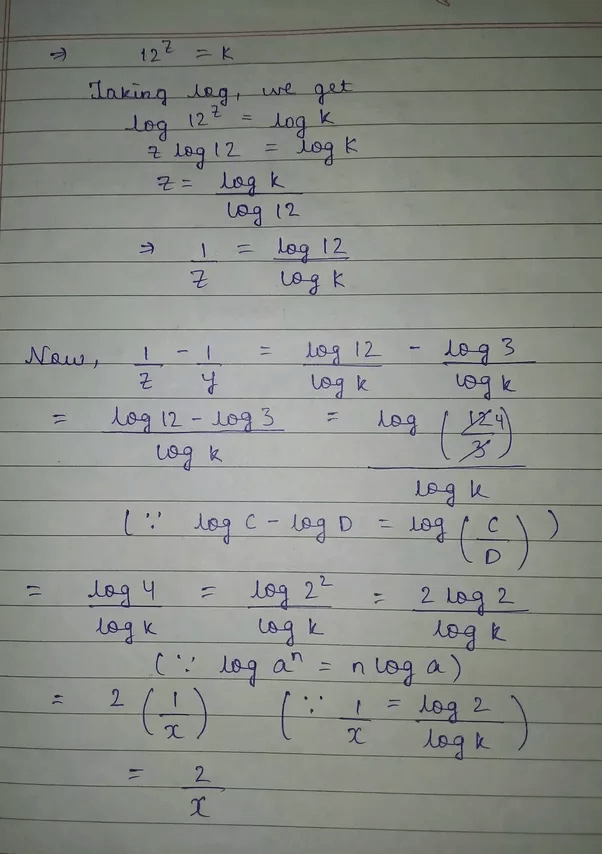 ⇒ 12^z = K
Taking log, we get
log 12^z = log K
z log 12 = log K
z = log K / log 12
⇒ 1/z = log 12 / log K
Now, 1/z - 1/y = log 12 / log K - log 3 / log K
= (log 12 - log 3) / log K = log (12 4 / 3) / log K
(∵ log C - log D = log (C/D))
= log 4 / log K = log 2² / log K = 2 log 2 / log K
(∵ log aⁿ = n log a)
= 2 (1/x) (∵ 1/x = log 2 / log K)
= 2/x